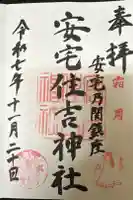 奉拝
霜月
安宅乃関鎮座
安宅住吉神社
令和七年十一月二十日